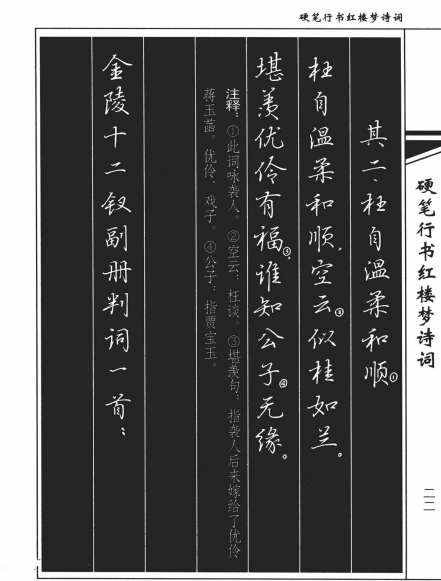 硬笔行书红楼梦诗词
其二、枉自温柔和顺①
枉自温柔和顺，空云②似桂如兰。
堪羡优伶有福③，谁知公子④无缘。
注释：①此词咏袭人。②空云：枉谈。③堪羡句：指袭人后来嫁给了优伶
蒋玉菡。优伶，戏子。④公子：指贾宝玉。
金陵十二钗副册判词一首：
硬笔行书红楼梦诗词
二二